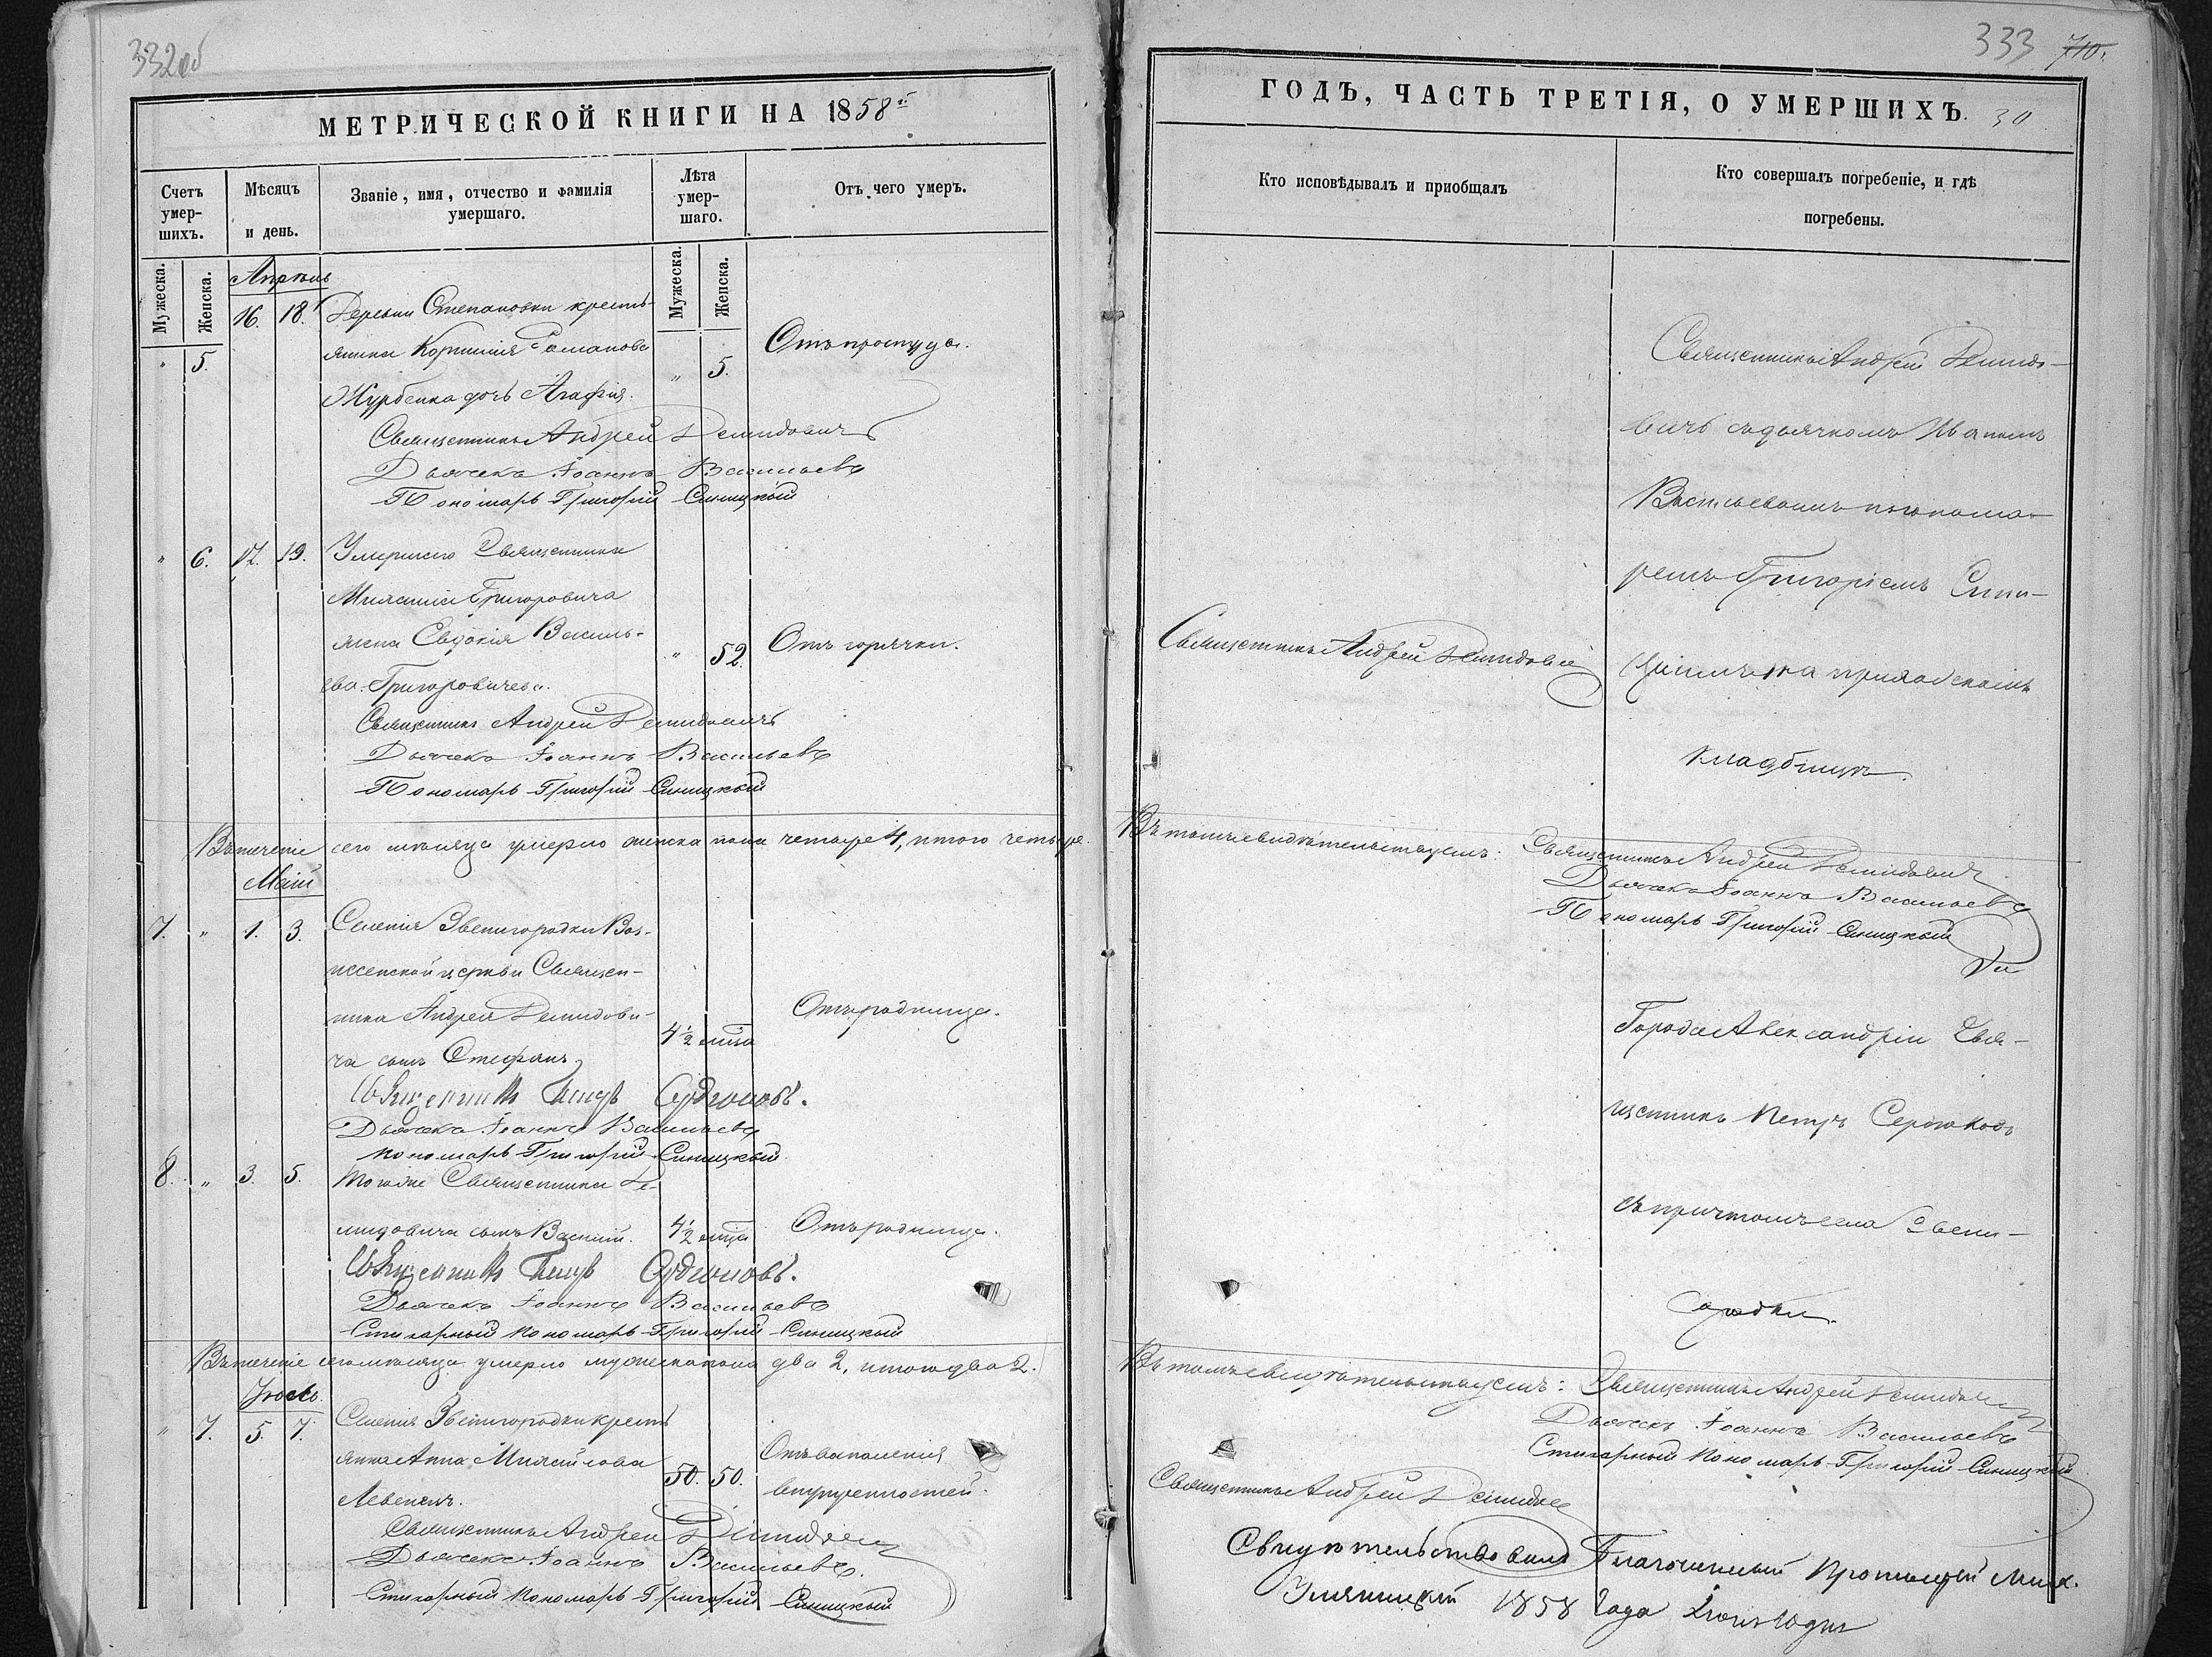 332об
МЕТРИЧЕСКОЙ КНИГИ НА 1858й
Счетъ умер-шихъ.
Мѣсяцъ и день.
Званіе, имя, отчество и фамилія умершаго.
Лѣта умер-шаго.
Отъ чего умеръ.
Мужеска. Женска.
Мужеска. Женска.
Апрѣль
" 5. 16. 18. Деревни Степановки кресть-
янина Корнилія Романова " 5. Отъ простуды.
Журбенка дочь Агафія.
Священникъ Андрей Демидовичъ
Дьячекъ Іоаннъ Васильевъ
Пономарь Григорій Синицкій
" 6. 17. 19. Умершаго Священника
Григоровича
жена Евдокія Василь-
ева Григоровичева. " 52. Отъ горячки.
Священникъ Андрей Демидовичъ
Дьячекъ Іоаннъ Васильевъ
Пономарь Григорій Синицкій
Въ теченіе сего мѣсяца умерло женска пола четыре 4, итого четыре.
Маій
7. " 1. 3. Селенія Звенигородки Воз-
несенской церкви Священ-
ника Андрея Демидови-
ча сынъ Стефанъ 4 1/2 мѣца Отъ родимца.
Священникъ Петръ
Дьячекъ Іоаннъ Васильевъ
Пономарь Григорій Синицкій
8. " 3. 5. Тогоже Священника Де-
мидовича сынъ Василій. 4 1/2 мѣца Отъ родимца.
Священникъ Петръ
Дьячекъ Іоаннъ Васильевъ
Стихарный Пономарь Григорій Синицкій
Въ теченіе сего мѣсяца умерло мужеска пола два 2, итого два 2.
" 7. 5. 7. Селенія Звенигородки кресть
янка Анна Михайлова 50. 50. Отъ воспаленія
внутренностей.
Священникъ Андрей Демидовичъ
Дьячекъ Іоаннъ Васильевъ.
Стихарный Пономарь Григорій Синицкій
333 710.
ГОДЪ, ЧАСТЬ ТРЕТІЯ, О УМЕРШИХЪ. 30
Кто исповѣдывалъ и приобщалъ
Кто совершалъ погребеніе, и гдѣ погребены.
Священникъ Андрей Демидо-
вичъ съ дьячкомъ Иваномъ
Васильевымъ и понома-
ремъ Григоріемъ Сини-
Священникъ Андрей Демидовичъ
цкимъ на приходскомъ
кладбищѣ.
Въ томъ свидѣтельствуемъ: Священникъ Андрей Демидовичъ
Дьячекъ Іоаннъ Васильевъ
Пономарь Григорій Синицкій
Города Александріи Свя-
щенникъ Петръ
съ причтомъ села Звени-
городки.
Въ томъ свидѣтельствуемъ: Священникъ Андрей Демидовичъ
Дьячекъ Іоаннъ Васильевъ
Стихарный Пономарь Григорій Синицкій
Священникъ Андрей Демидовичъ
Свидѣтельствовалъ Благочинный Протоіерей Мих.
1858 года